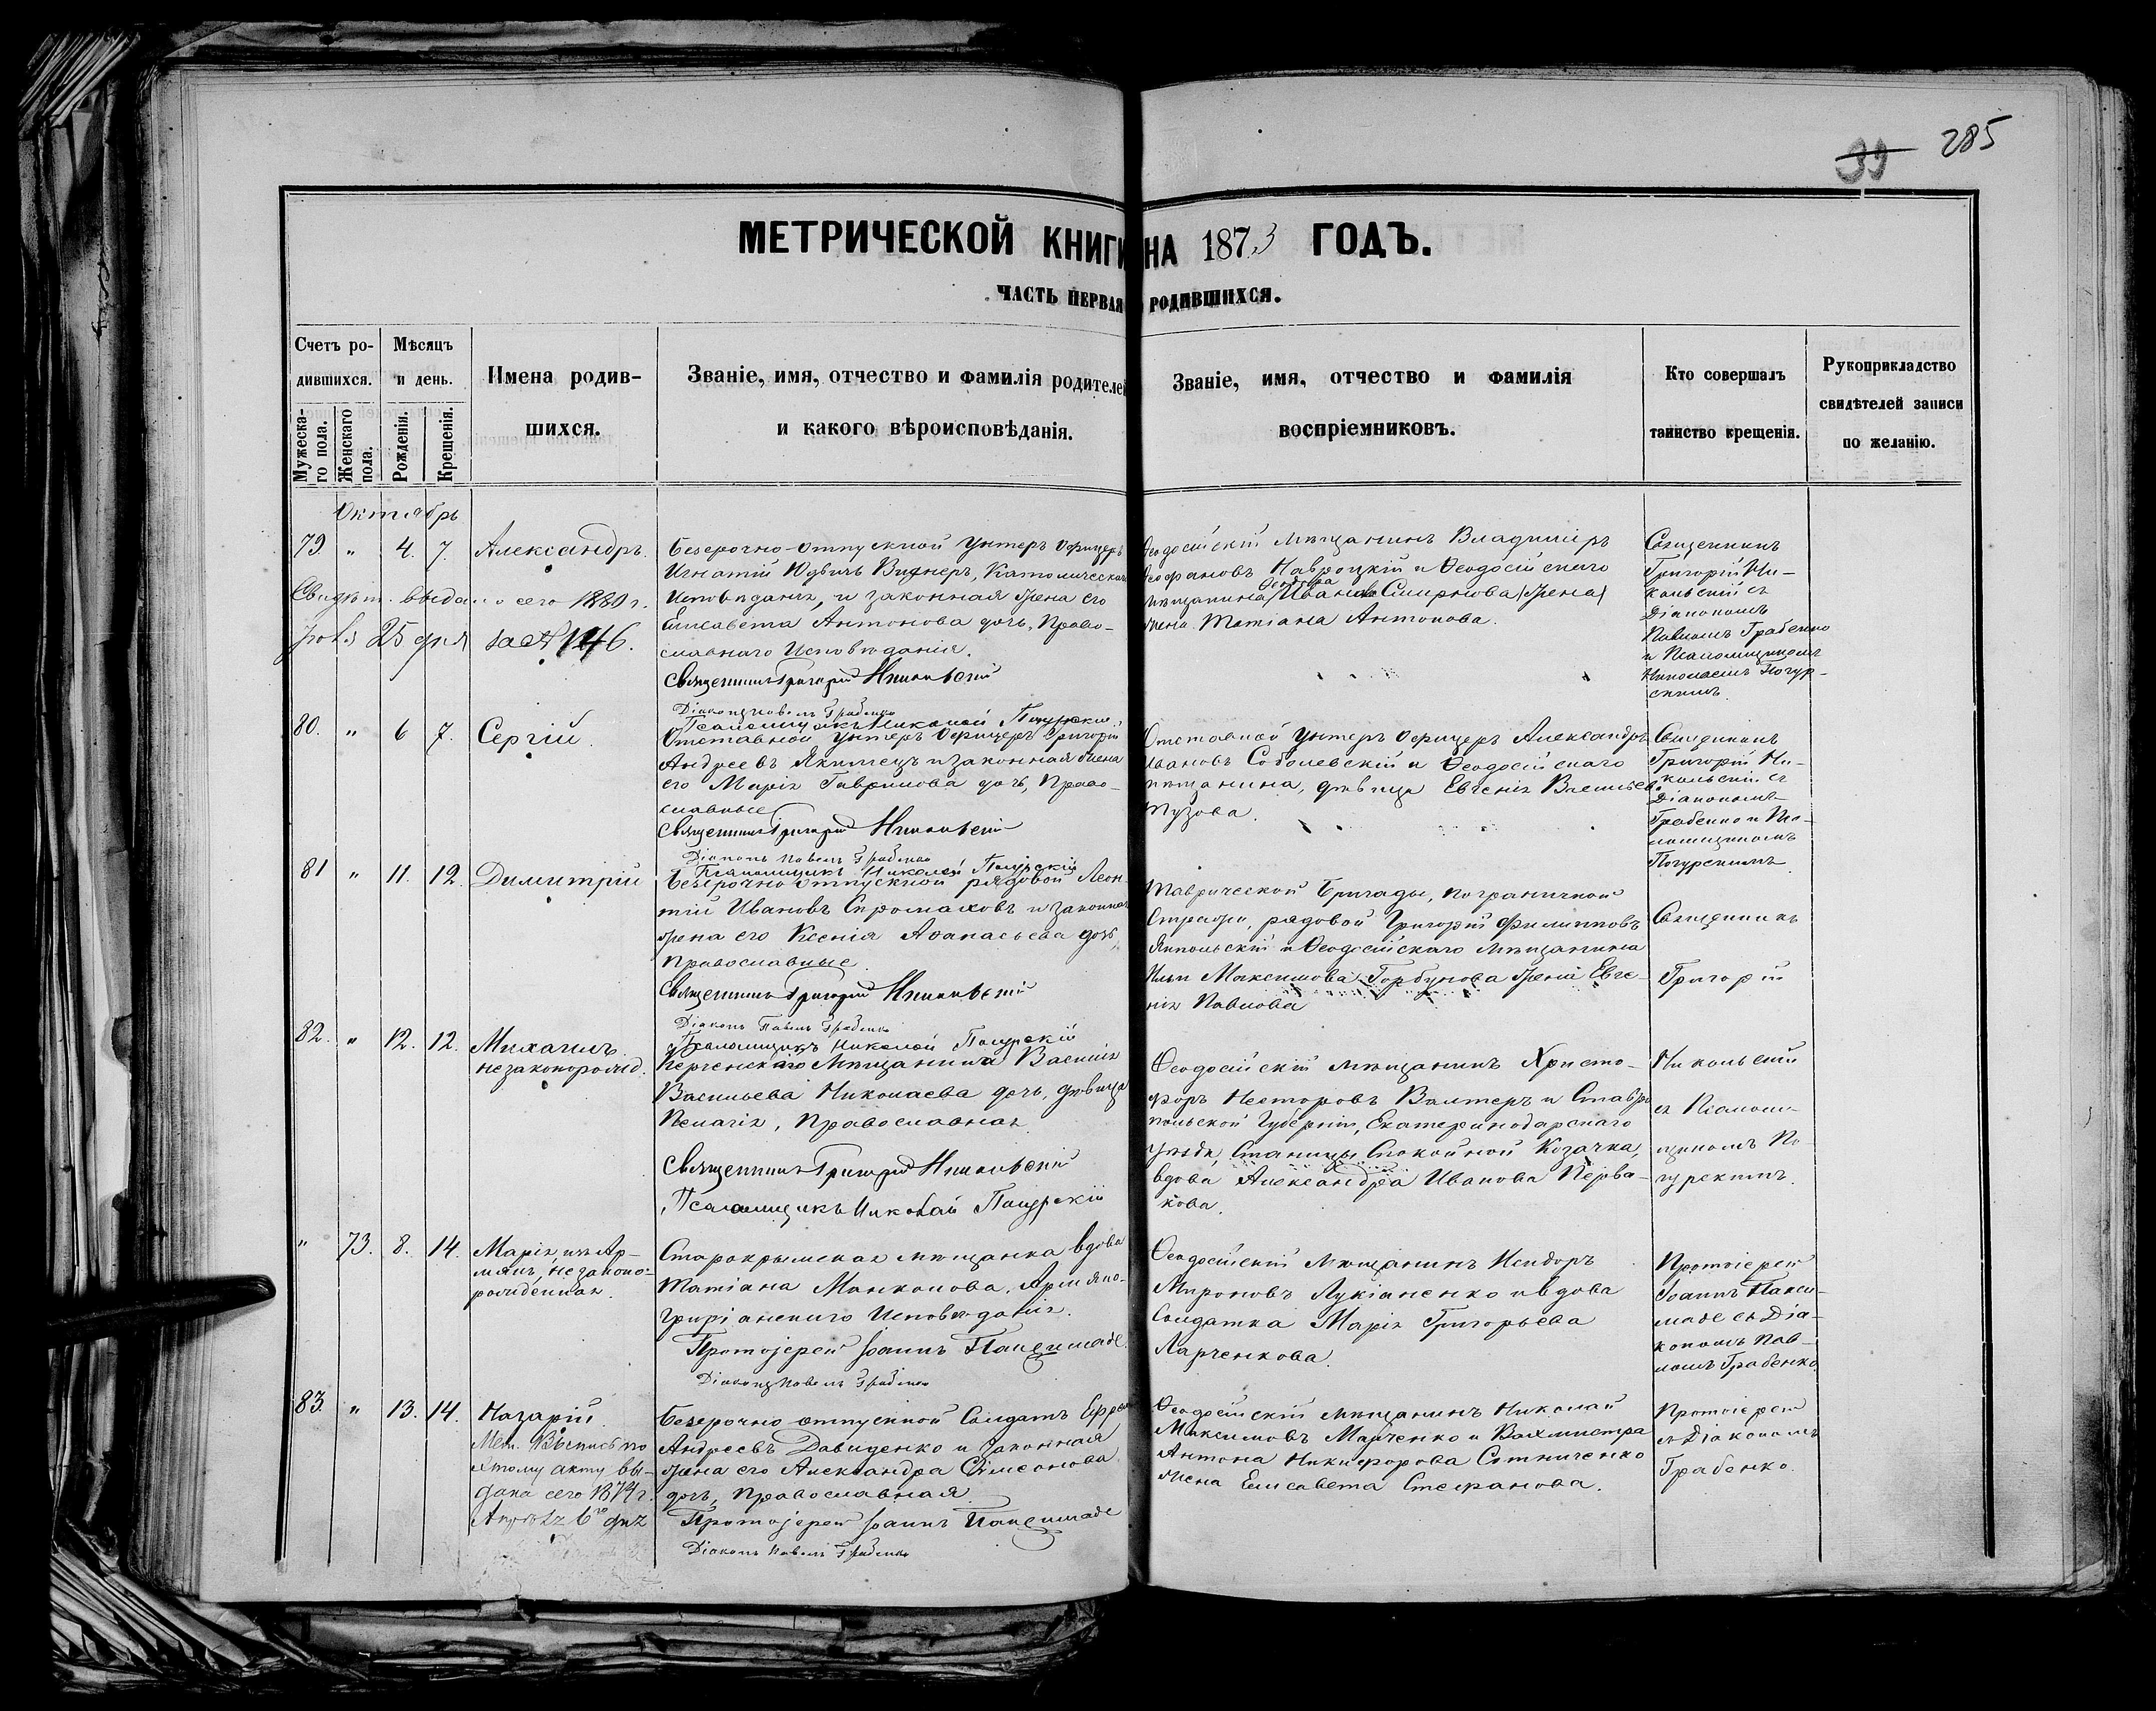 39 285
МЕТРИЧЕСКОЙ КНИГИ НА 1873 ГОДЪ.
ЧАСТЬ ПЕРВАЯ РОДИВШИХСЯ.
Счетъ родившихся.
Мужескаго пола.
Женскаго пола.
Мѣсяцъ и день.
Рожденія.
Крещенія.
Имена родившихся.
Званіе, имя, отчество и фамилія родителей
и какого вѣроисповѣданія.
Званіе, имя, отчество и фамилія
воспріемниковъ.
Кто совершалъ
таинство крещенія.
Рукоприкладство
свидѣтелей записи
по желанію.
Октябрь
79 " 4. 7. Александръ.
Свидѣт. выдано сего 1880 г.
25 дня за № 146.
Безсрочно-отпускной Унтеръ Офицеръ
Игнатій Католическаго
Исповѣданія, и законная жена его
Елисавета Антонова дочь, Право-
славнаго Исповѣданія.
Священникъ Григорій Никольскій
Діаконъ Павелъ Грабенко
Псаломщикъ Николай Погурскій
Ѳеодосійскій мѣщанинъ Владиміръ
Ѳеофановъ Навроцкій и Ѳеодосійскаго
мѣщанина Ѳеодора Иванова Смирнова (жена)
жена Татіана Антонова.
Священникъ
Григорій Ни-
кольскій съ
Діакономъ
Павломъ Грабенко
и Псаломщикомъ
Николаемъ Погур-
скимъ.
80. " 6 7. Сергій.
Отставной Унтеръ Офицеръ Григорій
Андреевъ Якимецъ и законная жена
его Марія Гаврилова дочь, Право-
славные
Священникъ Григорій Никольскій
Діаконъ Павелъ Грабенко
Псаломщикъ Николай Погурскій
Отставной Унтеръ Офицеръ Александръ
Ивановъ Соболевскій и Ѳеодосійскаго
мѣщанина, дѣвица Евгенія Васильева
Тузова.
Священникъ
Григорій Ни-
кольскій съ
Діакономъ
Грабенко и Пса-
ломщикомъ
Погурскимъ
81 " 11. 12. Димитрій
Безсрочно отпускной рядовой Леон-
тій Ивановъ Скромаховъ и законная
жена его Ксенія Аѳанасьева дочь,
Православные.
Священникъ Григорій Никольскій
Діаконъ Павелъ Грабенко
Псаломщикъ Николай Погурскій
Таврической Бригады, пограничной
Стражи, рядовой Григорій Филипповъ
Ямпольскій и Ѳеодосійскаго мѣщанина
Ильи Максимова Горбунова жена Евге-
нія Павлова
Священникъ
Григорій
82. " 12. 12. Михаилъ
незаконорожд.
Керченскаго Мѣщанина Василія
Васильева Николаева дочь, дѣвица
Пелагія, Православная
Священникъ Григорій Никольскій
Псаломщикъ Николай Погурскій
Ѳеодосійскій мѣщанинъ Христо-
форъ Несторовъ Валтеръ и Ставро
польской Губерніи, Екатеринодарскаго
уѣзда, Станицы Спокойной Козачка,
вдова Александра Иванова Перва-
кова.
Никольскій
съ Псалом-
щикомъ По-
гурскимъ.
" 73. 8. 14. Марія, изъ Ар-
мянъ, незаконо-
рожденная.
Старокрымская мѣщанка вдова
Татіана Манкопова, Армяно-
григріанскаго Исповѣданія.
Протоіерей Іоаннъ Пакенмаде
Діаконъ Павелъ Грабенко
Ѳеодосійскій Мѣщанинъ Исидоръ
Мироновъ Лукіаненко и вдова
Солдатка Марія Григорьева
Ларченкова.
Протоіерей
Іоаннъ
съ Діа-
кономъ Пав-
ломъ Грабенко
83. " 13. 14. Назарій.
Мет. Выпись по
этому акту вы-
дана сего 1874 г.
Апрѣля 6го дня
Безсрочно отпускной Солдатъ Ефремъ
Андреевъ Давиденко и законная
жена его Александра Симеонова
дочь, Православная
Протоіерей Іоаннъ Пакенмаде
Діаконъ Павелъ Грабенко
Ѳеодосійскій мѣщанинъ Николай
Максимовъ Марченко и Вахмистра
Антона Никифорова Сотниченко
жена Елисавета Стефанова.
Протоіерей
съ Діакономъ
Грабенко.